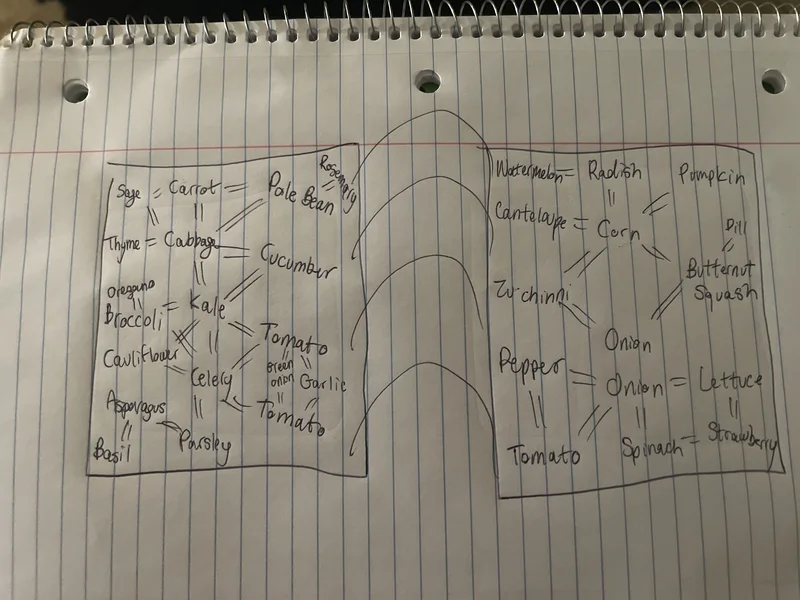 Sage = Carrot = Pale Bean = Rosemary
Thyme = Cabbage = Cucumbur
Oregano
Broccoli = Kale = Tomato
Cauliflower = Celery = Green onion Garlic
Asparagus = Tomato
Basil Parsley
Watermelon = Radish Pumpkin
Canteloupe = Corn Dill
Zuchinni Butternut
Squash
Onion
Pepper = Onion = Lettuce
Tomato Spinach = Strawberry